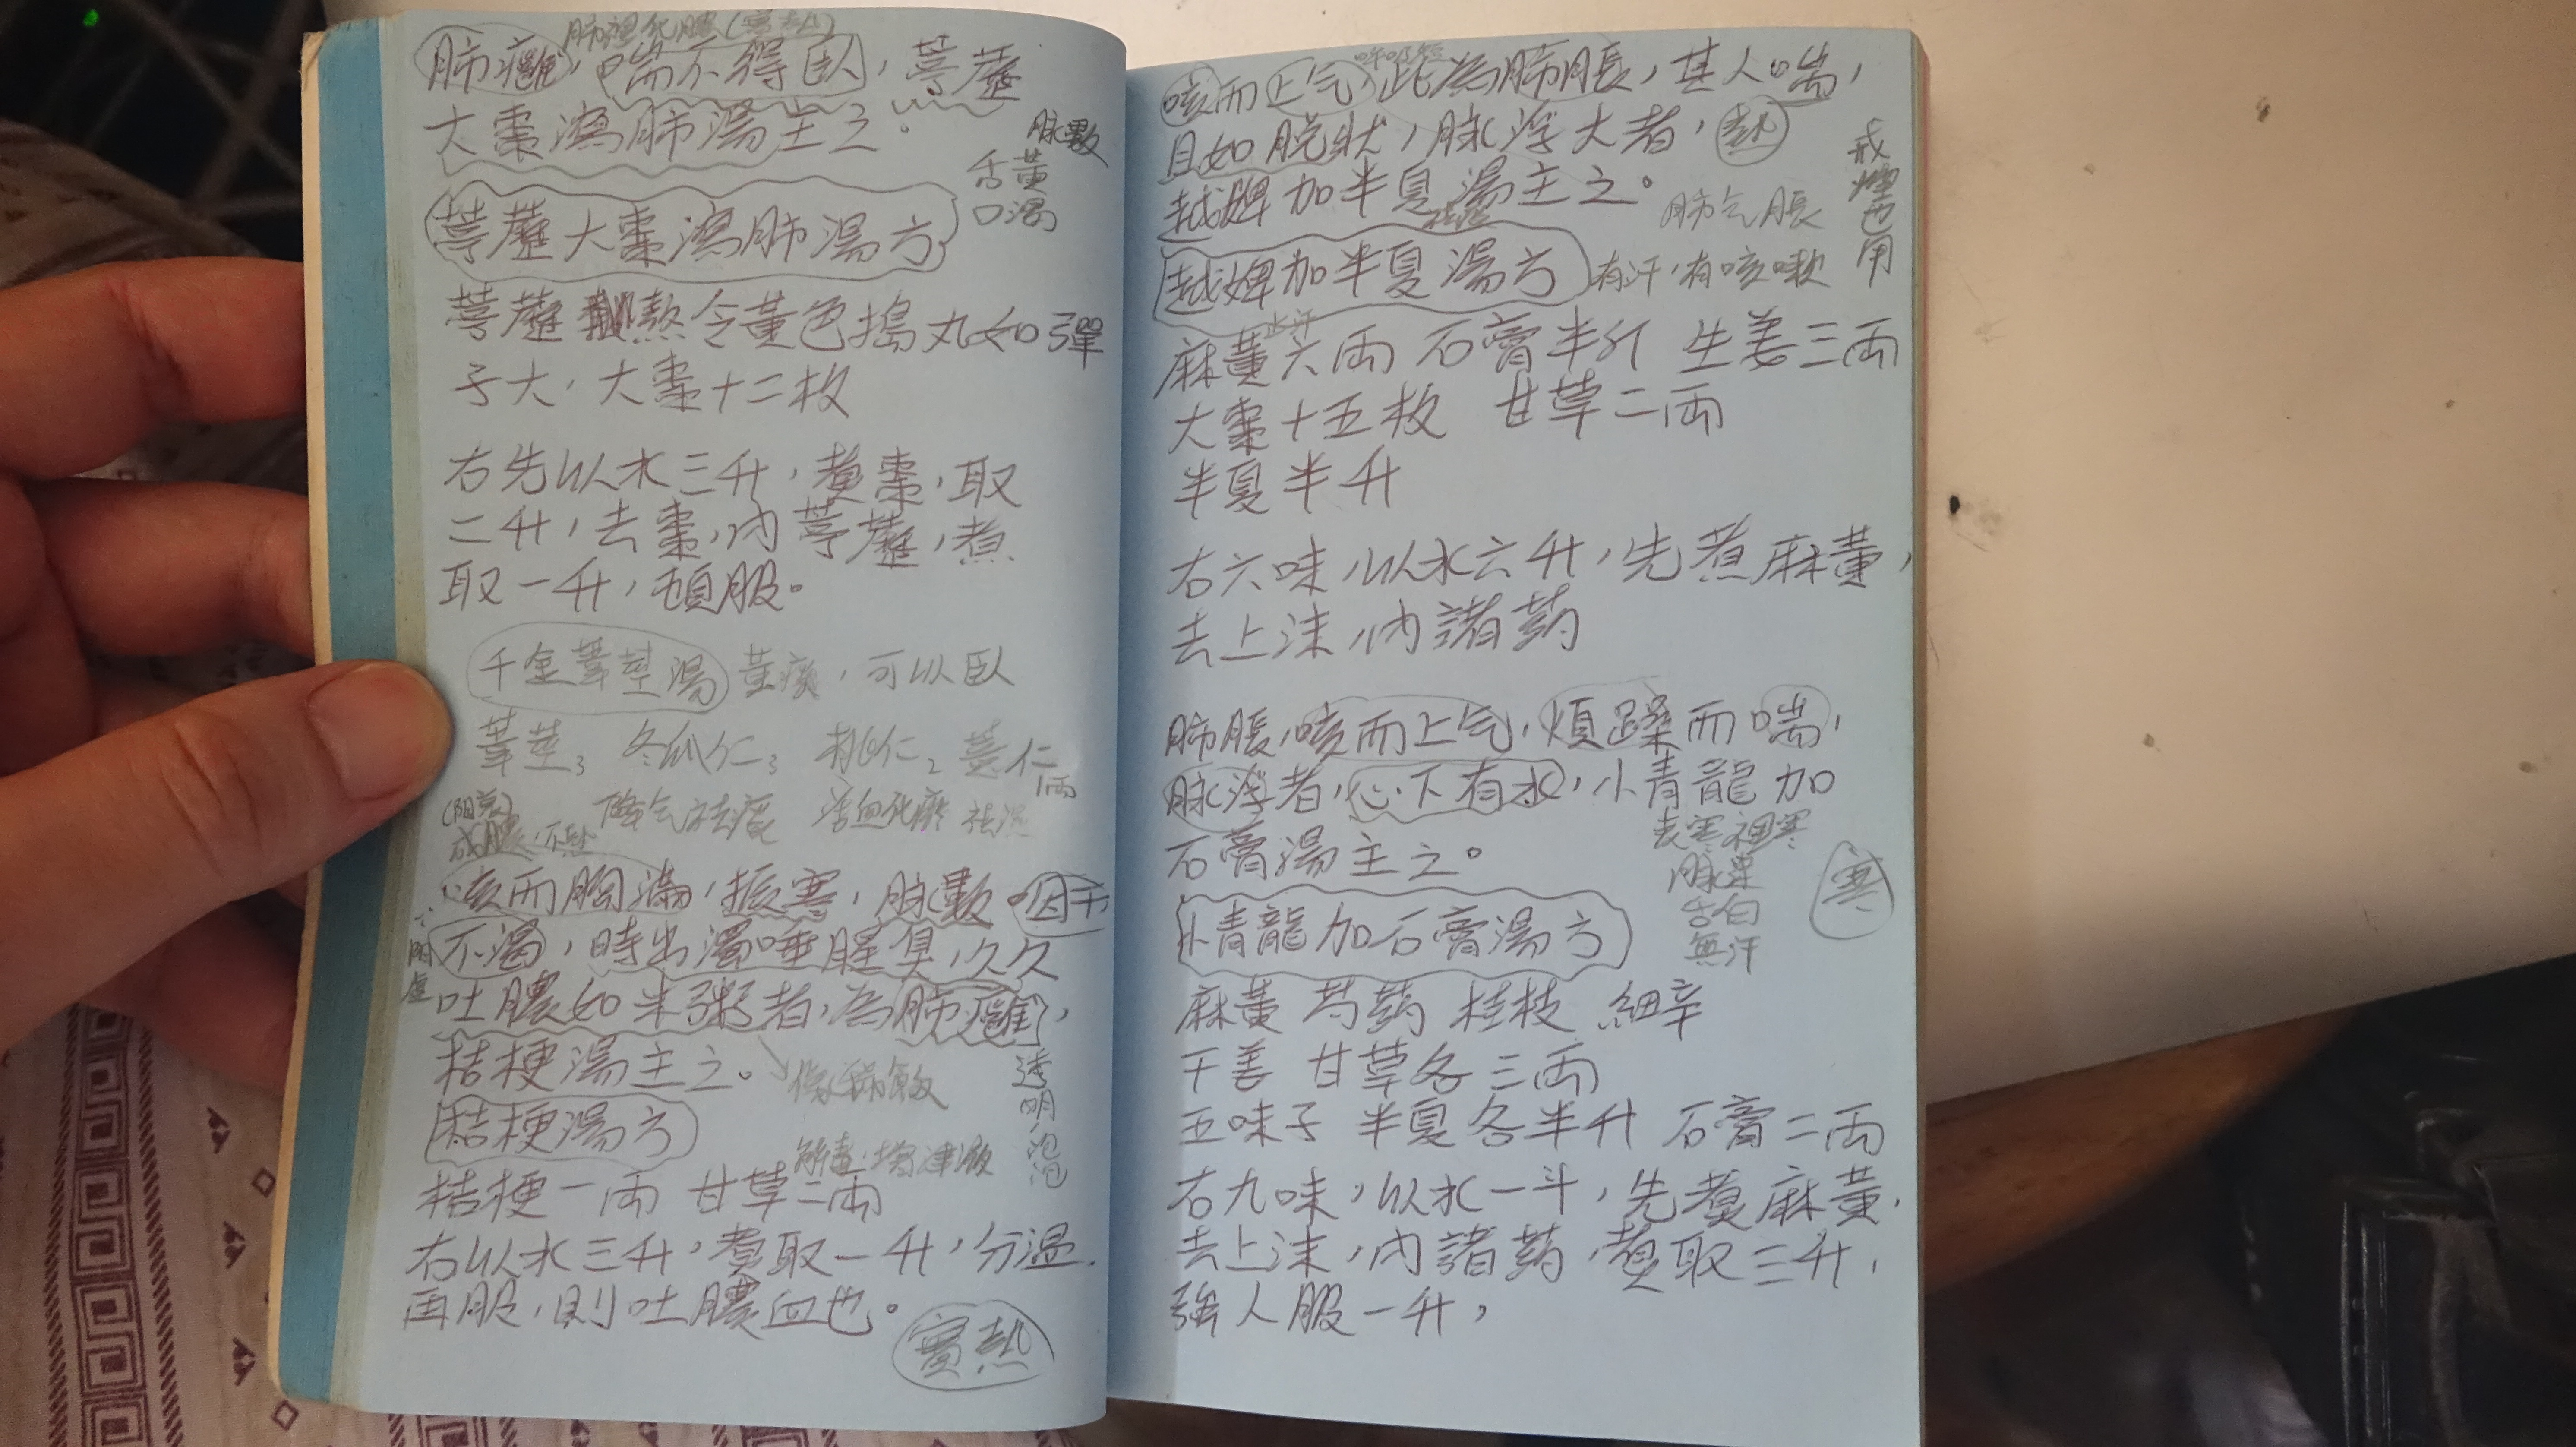 肺癰，喘不得臥，葶藶
大棗瀉肺湯主之。
脉數
舌黃
口渴
葶藶大棗瀉肺湯方
葶藶熬令黃色搗丸如彈
子大，大棗十二枚
右先以水三升，煑棗，取
二升，去棗，内葶藶，煮
取一升，頓服。
千金葦莖湯 黃痰，可以臥
葦莖3 冬瓜仁3 桃仁2 薏仁1兩
降气祛痰 活血化瘀 祛濕
咳而胸滿，振寒，脉數。因干
不渴，時出濁唾腥臭，久久
吐膿如米粥者，為肺癰，
桔梗湯主之。
透明泡泡
桔梗湯方
解毒，增津液
桔梗一兩 甘草二兩
右以水三升，煑取一升，分溫
再服，則吐膿血也。
實熱
咳而上气，此為肺脹，其人喘，
目如脱狀，脉浮大者，熱
越婢加半夏湯主之。
肺气脹
戒煙也用
越婢加半夏湯方
有汗，有咳嗽
止汗
麻黃六兩 石膏半斤 生姜三兩
大棗十五枚 甘草二兩
半夏半升
右六味，以水六升，先煮麻黃，
去上沫，内諸药
肺脹，咳而上气，煩躁而喘，
脉浮者，心下有水，小青龍加
石膏湯主之。
表寒裡寒
脉緊
舌白
無汗
寒
小青龍加石膏湯方
麻黃 芍药 桂枝 細辛
干姜 甘草各三兩
五味子 半夏各半升 石膏二兩
右九味，以水一斗，先煑麻黃，
去上沫，内諸药，煑取三升，
強人服一升，